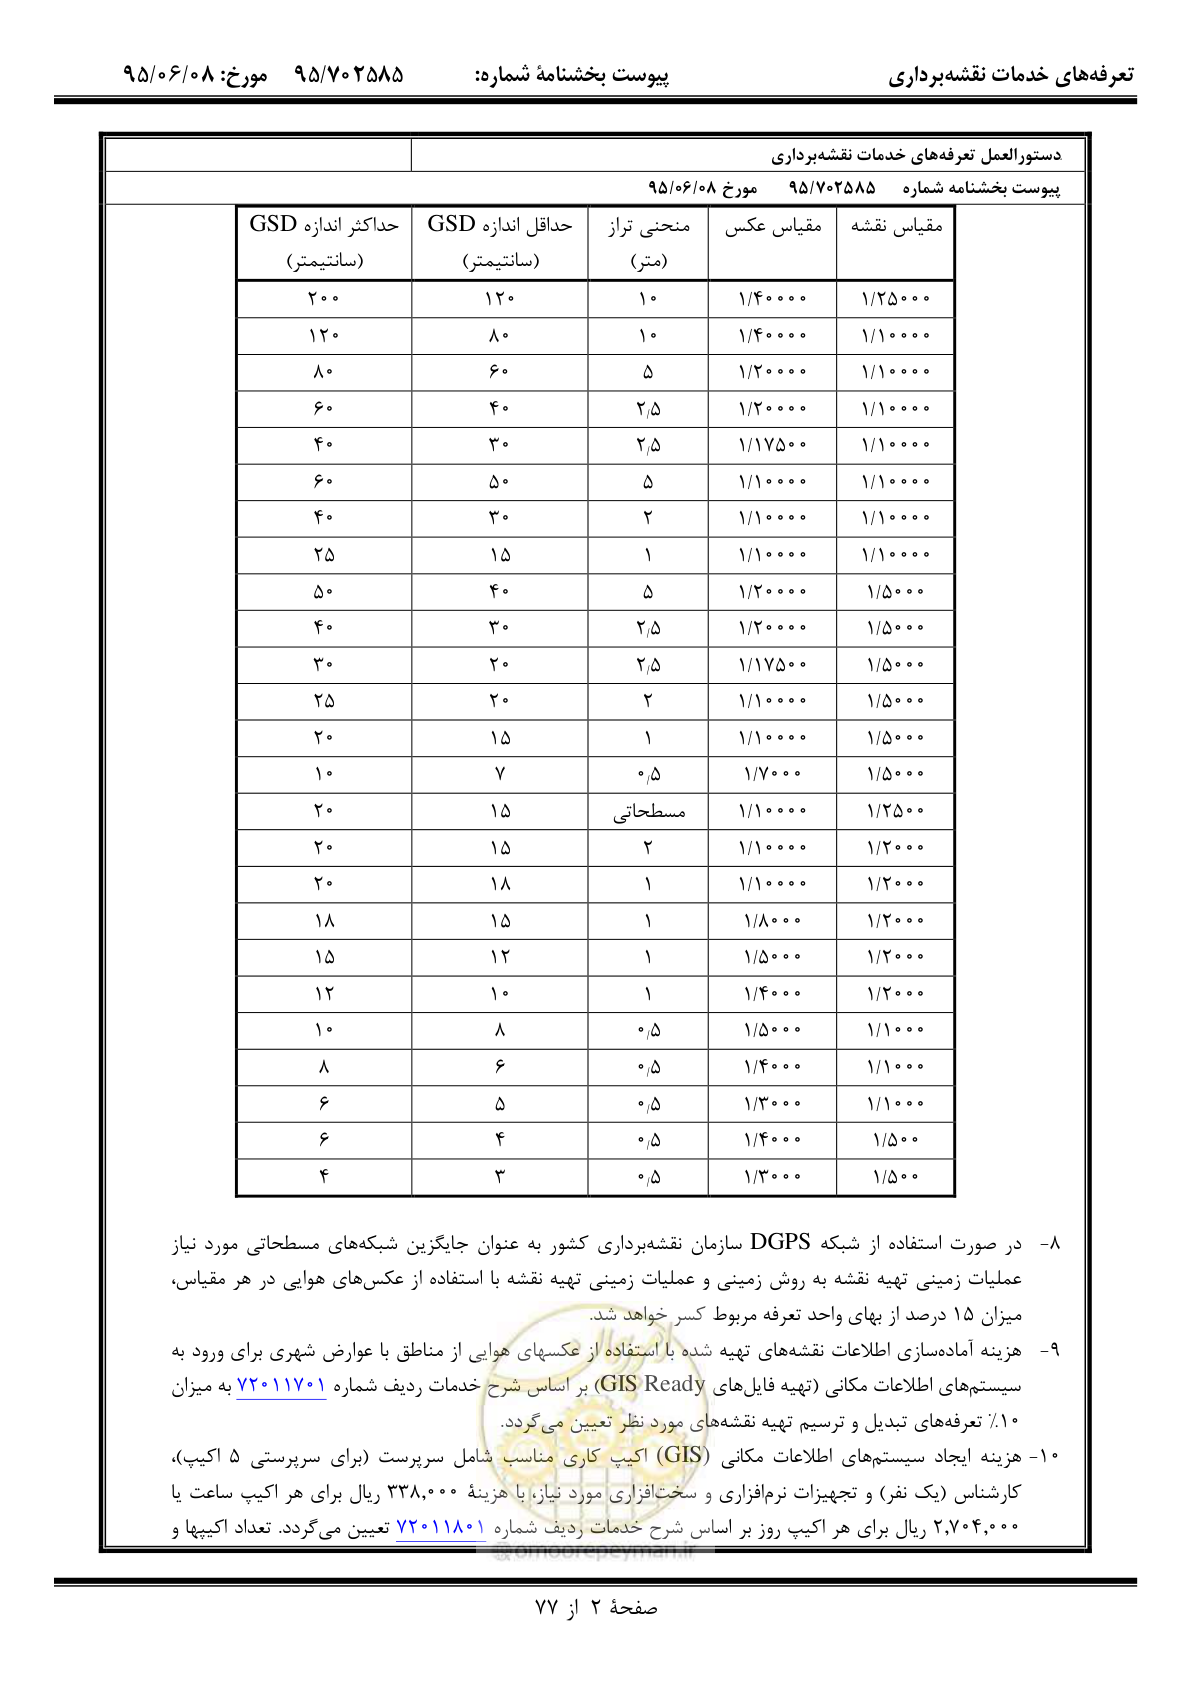 تعرفه‌های خدمات نقشه‌برداری پیوست بخشنامهٔ شماره: ۹۵/۷۰۲۵۸۵ مورخ: ۹۵/۰۶/۰۸
دستورالعمل تعرفه‌های خدمات نقشه‌برداری
پیوست بخشنامه شماره ۹۵/۷۰۲۵۸۵ مورخ ۹۵/۰۶/۰۸
مقیاس نقشه مقیاس عکس منحنی تراز حداقل اندازه GSD حداکثر اندازه GSD
(متر) (سانتیمتر) (سانتیمتر)
۱/۲۵۰۰۰ ۱/۴۰۰۰۰ ۱۰ ۱۲۰ ۲۰۰
۱/۱۰۰۰۰ ۱/۴۰۰۰۰ ۱۰ ۸۰ ۱۲۰
۱/۱۰۰۰۰ ۱/۲۰۰۰۰ ۵ ۶۰ ۸۰
۱/۱۰۰۰۰ ۱/۲۰۰۰۰ ۲٫۵ ۴۰ ۶۰
۱/۱۰۰۰۰ ۱/۱۷۵۰۰ ۲٫۵ ۳۰ ۴۰
۱/۱۰۰۰۰ ۱/۱۰۰۰۰ ۵ ۵۰ ۶۰
۱/۱۰۰۰۰ ۱/۱۰۰۰۰ ۲ ۳۰ ۴۰
۱/۱۰۰۰۰ ۱/۱۰۰۰۰ ۱ ۱۵ ۲۵
۱/۵۰۰۰ ۱/۲۰۰۰۰ ۵ ۴۰ ۵۰
۱/۵۰۰۰ ۱/۲۰۰۰۰ ۲٫۵ ۳۰ ۴۰
۱/۵۰۰۰ ۱/۱۷۵۰۰ ۲٫۵ ۲۰ ۳۰
۱/۵۰۰۰ ۱/۱۰۰۰۰ ۲ ۲۰ ۲۵
۱/۵۰۰۰ ۱/۱۰۰۰۰ ۱ ۱۵ ۲۰
۱/۵۰۰۰ ۱/۷۰۰۰ ۰٫۵ ۷ ۱۰
۱/۲۵۰۰ ۱/۱۰۰۰۰ مسطحاتی ۱۵ ۲۰
۱/۲۰۰۰ ۱/۱۰۰۰۰ ۲ ۱۵ ۲۰
۱/۲۰۰۰ ۱/۱۰۰۰۰ ۱ ۱۸ ۲۰
۱/۲۰۰۰ ۱/۸۰۰۰ ۱ ۱۵ ۱۸
۱/۲۰۰۰ ۱/۵۰۰۰ ۱ ۱۲ ۱۵
۱/۲۰۰۰ ۱/۴۰۰۰ ۱ ۱۰ ۱۲
۱/۱۰۰۰ ۱/۵۰۰۰ ۰٫۵ ۸ ۱۰
۱/۱۰۰۰ ۱/۴۰۰۰ ۰٫۵ ۶ ۸
۱/۱۰۰۰ ۱/۳۰۰۰ ۰٫۵ ۵ ۶
۱/۵۰۰ ۱/۴۰۰۰ ۰٫۵ ۴ ۶
۱/۵۰۰ ۱/۳۰۰۰ ۰٫۵ ۳ ۴
۸- در صورت استفاده از شبکه DGPS سازمان نقشه‌برداری کشور به عنوان جایگزین شبکه‌های مسطحاتی مورد نیاز
عملیات زمینی تهیه نقشه به روش زمینی و عملیات زمینی تهیه نقشه با استفاده از عکس‌های هوایی در هر مقیاس،
میزان ۱۵ درصد از بهای واحد تعرفه مربوط کسر خواهد شد.
۹- هزینه آماده‌سازی اطلاعات نقشه‌های تهیه شده با استفاده از عکسهای هوایی از مناطق با عوارض شهری برای ورود به
سیستم‌های اطلاعات مکانی (تهیه فایل‌های GIS Ready) بر اساس شرح خدمات ردیف شماره ۷۲۰۱۱۷۰۱ به میزان
۱۰٪ تعرفه‌های تبدیل و ترسیم تهیه نقشه‌های مورد نظر تعیین می‌گردد.
۱۰- هزینه ایجاد سیستم‌های اطلاعات مکانی (GIS) اکیپ کاری مناسب شامل سرپرست (برای سرپرستی ۵ اکیپ)،
کارشناس (یک نفر) و تجهیزات نرم‌افزاری و سخت‌افزاری مورد نیاز، با هزینهٔ ۳۳۸,۰۰۰ ریال برای هر اکیپ ساعت یا
۲,۷۰۴,۰۰۰ ریال برای هر اکیپ روز بر اساس شرح خدمات ردیف شماره ۷۲۰۱۱۸۰۱ تعیین می‌گردد. تعداد اکیپها و
@omoorepeyman.ir
صفحهٔ ۲ از ۷۷